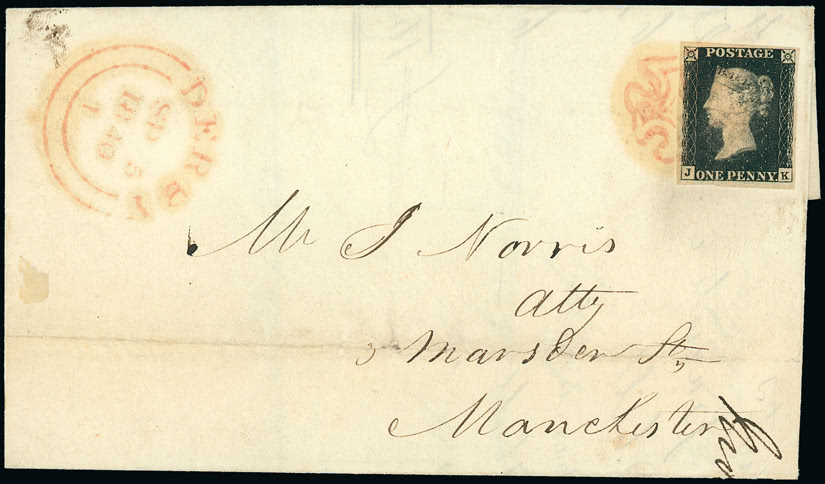 DERBY
SP 5
1840
POSTAGE
J ONE PENNY K
Mr J Norris
Atty
3 Marsden St
Manchester